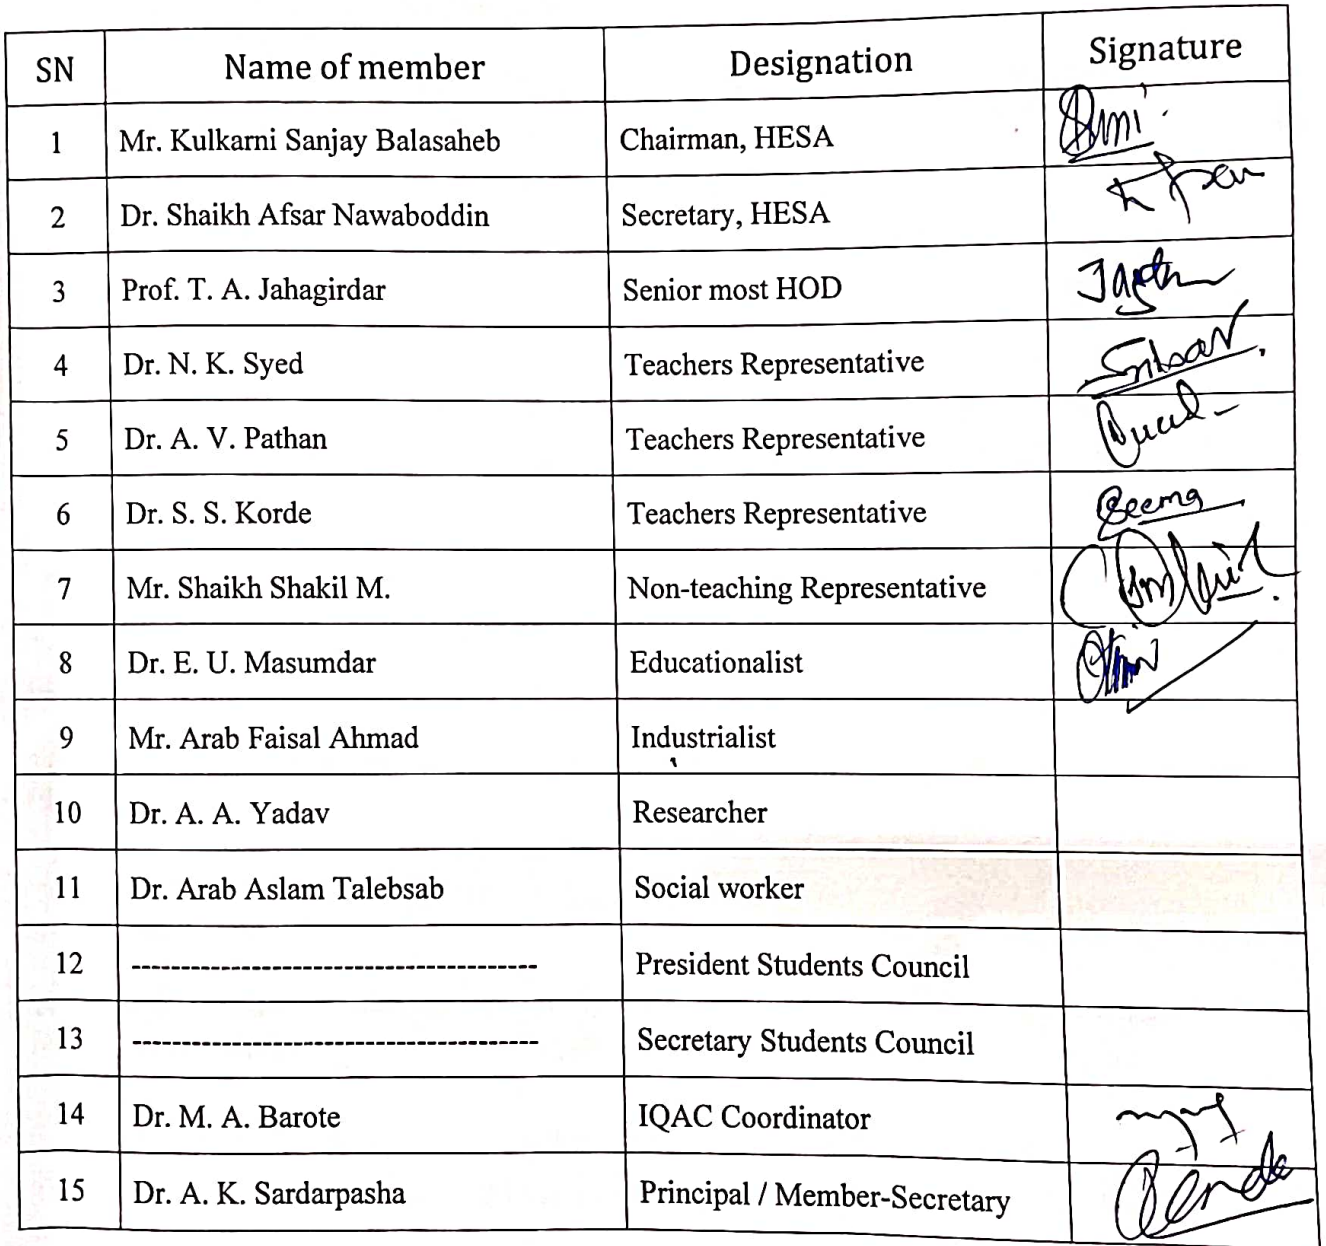 SN Name of member Designation Signature
1 Mr. Kulkarni Sanjay Balasaheb Chairman, HESA
2 Dr. Shaikh Afsar Nawaboddin Secretary, HESA
3 Prof. T. A. Jahagirdar Senior most HOD
4 Dr. N. K. Syed Teachers Representative
5 Dr. A. V. Pathan Teachers Representative
6 Dr. S. S. Korde Teachers Representative Seema
7 Mr. Shaikh Shakil M. Non-teaching Representative
8 Dr. E. U. Masumdar Educationalist
9 Mr. Arab Faisal Ahmad Industrialist
10 Dr. A. A. Yadav Researcher
11 Dr. Arab Aslam Talebsab Social worker
12 ----------------------------------------- President Students Council
13 ----------------------------------------- Secretary Students Council
14 Dr. M. A. Barote IQAC Coordinator
15 Dr. A. K. Sardarpasha Principal / Member-Secretary